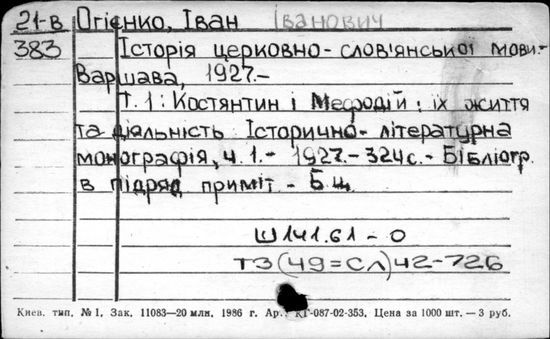 21-в Огієнко, Іван Іванович
383 Історія церковно-слов'янської мови.-
Варшава, 1927.-
Т.1: Костянтин і Мефодій: їх життя
та діяльність. Історично-літературна
монографія, ч.1.- 1927.- 324с.- Бібліогр.
в підряд. приміт.- Б.ц.
Ш141.61-0
ТЗ(49=СЛ)42-726
Киев. тип. № 1, Зак. 11083—20 млн. 1986 г. КГ-087-02-353. Цена за 1000 шт. — 3 руб.